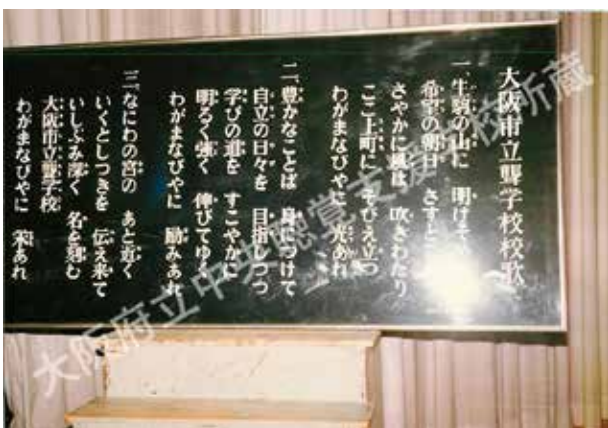 大阪市立聾学校校歌
一、生駒の山に 明けそ
希望の朝日 さすとこ
さやかに風は 吹きわたり
ここ上町に そびえ立つ
わがまなびやに 光あれ
二、豊かなことば 身につけて
自立の日々を 目指しつつ
学びの道を すこやかに
明るく強く 伸びてゆく
わがまなびやに 励みあれ
三、なにわの宮の あと近く
いくとしつきを 伝え来て
いしぶみ深く 名を刻む
大阪市立聾学校
わがまなびやに 栄あれ
大阪府立中央聴覚支援学校所蔵